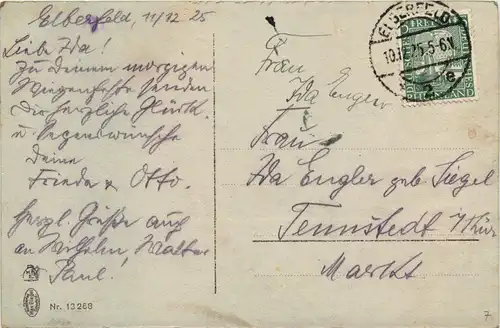 Elberfeld, 11/12 25
Liebe Ida!
Zu Deinem morgigen
Wiegenfeste senden
Dir herzliche Glück
u. Segenswünsche
Deine
Frieda & Otto.
Herzl. Grüße auch
an Wilhelm, Walter
Paul.
Nr. 13268
ELBERFELD
5-6N
2 e
Frau
Ida Engler
Frau
Ida Engler geb Siegel
Tennstedt i/Thür
Markt
7